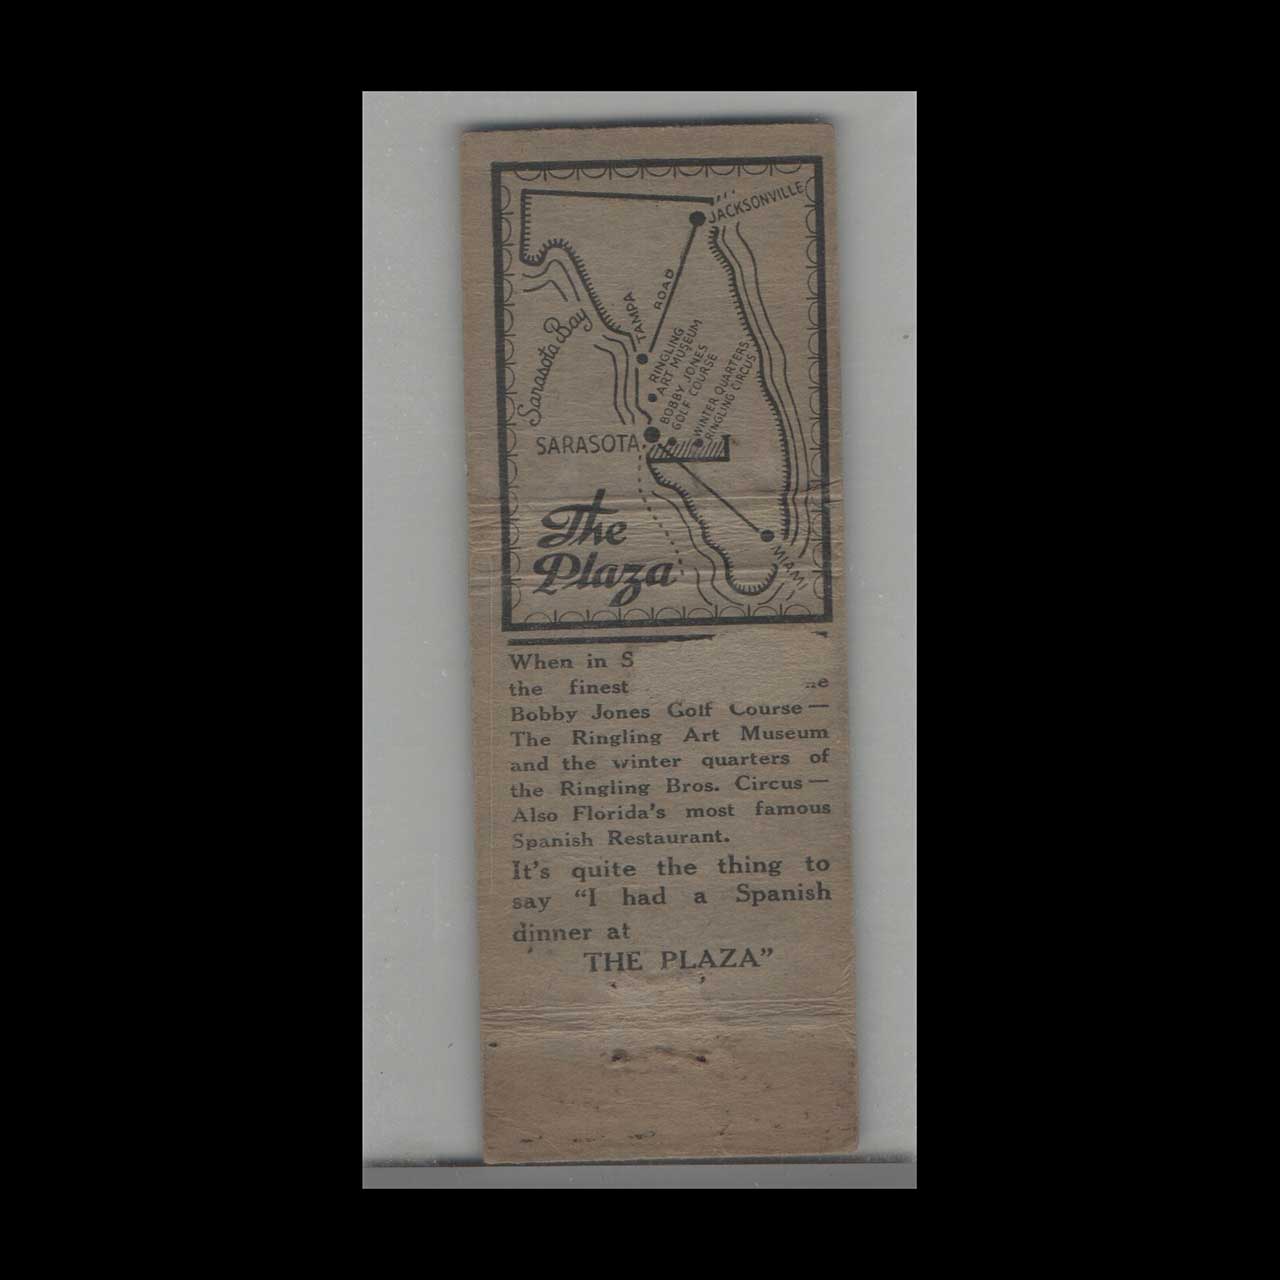 JACKSONVILLE
ROAD
TAMPA
Sarasota Bay
RINGLING
ART MUSEUM
BOBBY JONES
GOLF COURSE
WINTER QUARTERS
RINGLING CIRCUS
SARASOTA
MIAMI
The
Plaza
When in S
the finest
Bobby Jones Golf Course—
The Ringling Art Museum
and the winter quarters of
the Ringling Bros. Circus—
Also Florida's most famous
Spanish Restaurant.
It's quite the thing to
say “I had a Spanish
dinner at
THE PLAZA”